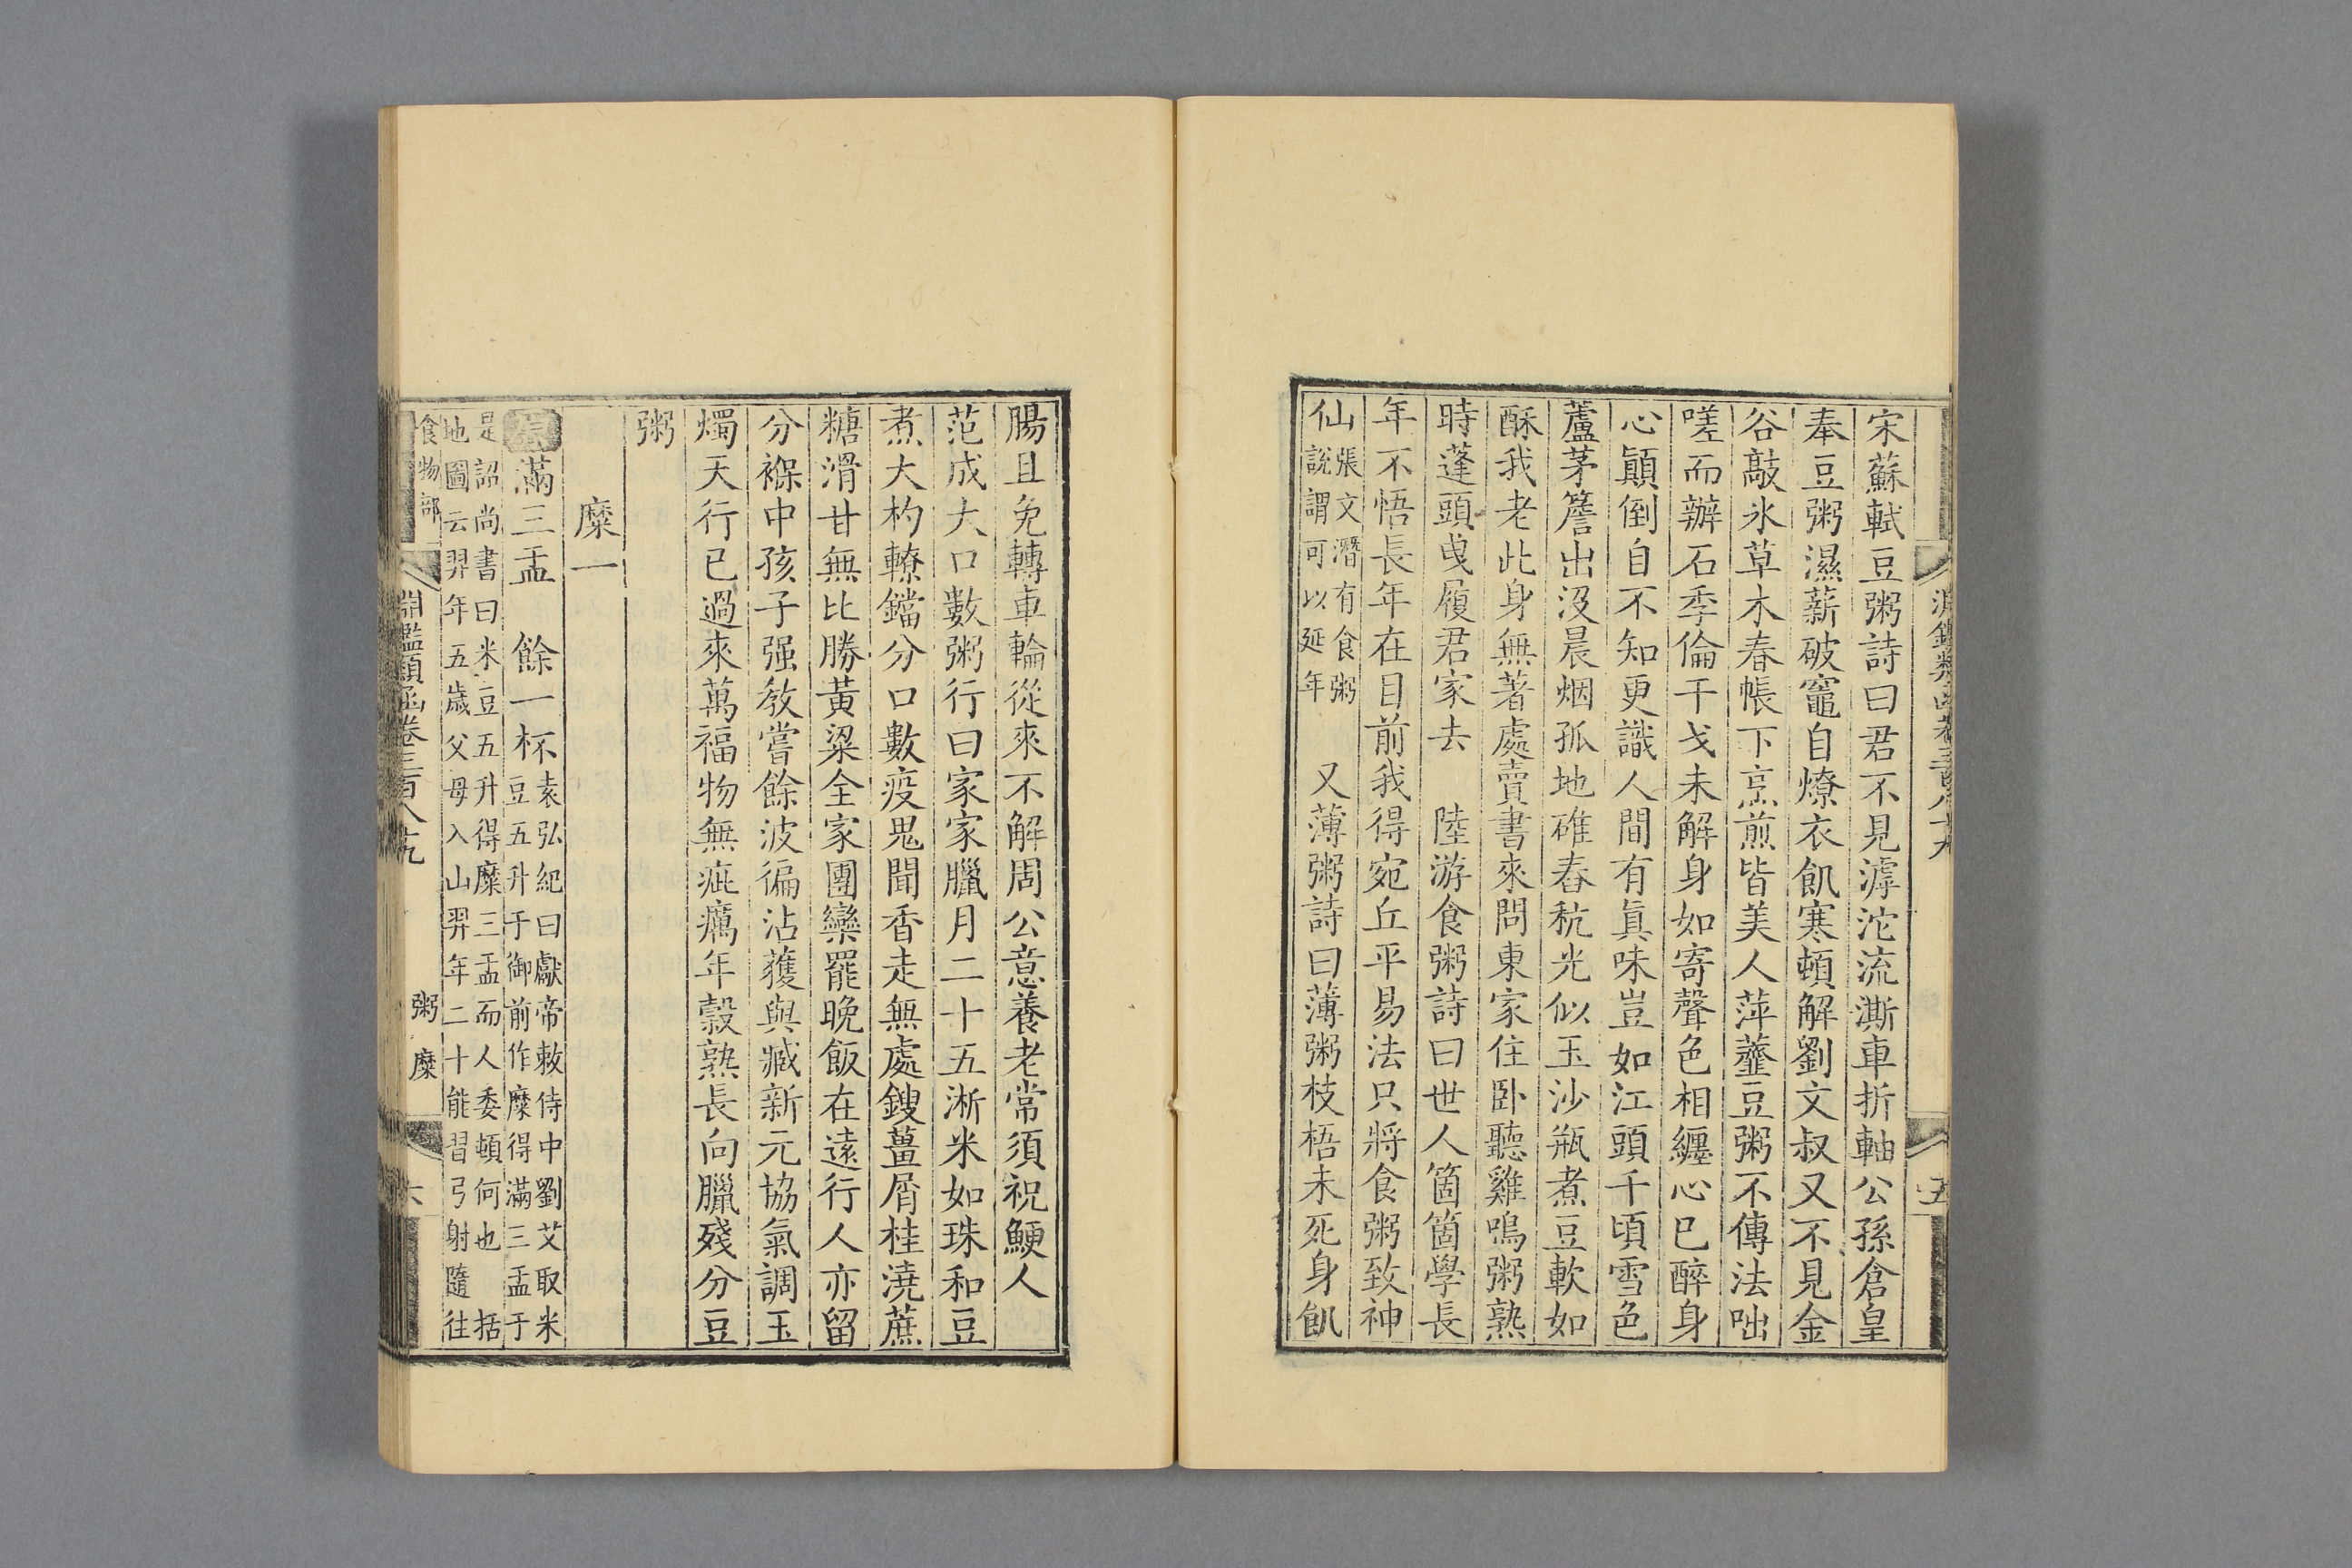 淵鑑類函卷三百八十九
五
宋蘇軾豆粥詩曰君不見滹沱流澌車折軸公孫倉皇
奉豆粥濕薪破竈自燎衣飢寒頓解劉文叔又不見金
谷敲氷草木春帳下烹煎皆美人萍虀豆粥不傳法咄
嗟而辦石季倫干戈未解身如寄聲色相纒心已醉身
心顚倒自不知更識人間有眞味豈如江頭千頃雪色
蘆茅簷出沒晨烟孤地碓舂秔光似玉沙瓶煮豆軟如
酥我老此身無著處賣書來問東家住卧聽雞鳴粥熟
時蓬頭曵履君家去　陸游食粥詩曰世人箇箇學長
年不悟長年在目前我得宛丘平易法只將食粥致神
仙張文潛有食粥說謂可以延年　又薄粥詩曰薄粥枝梧未死身飢
腸且免轉車輪從來不解周公意養老常須祝鯁人
范成大口數粥行曰家家臘月二十五淅米如珠和豆
煮大杓轑鐺分口數疫鬼聞香走無處鎪薑屑桂澆蔗
糖滑甘無比勝黃粱全家團欒罷晚飯在遠行人亦留
分褓中孩子强敎嘗餘波徧沾獲與臧新元協氣調玉
燭天行已過來萬福物無疵癘年穀熟長向臘殘分豆
粥
糜一
滿三盂　餘一杯袁弘紀曰獻帝敕侍中劉艾取米
豆五升于御前作糜得滿三盂于
是詔尚書曰米豆五升得糜三盂而人委頓何也　括
地圖云羿年五歲父母入山羿年二十能習弓射隨往
食物部
淵鑑類函卷三百八十九
粥　糜
六